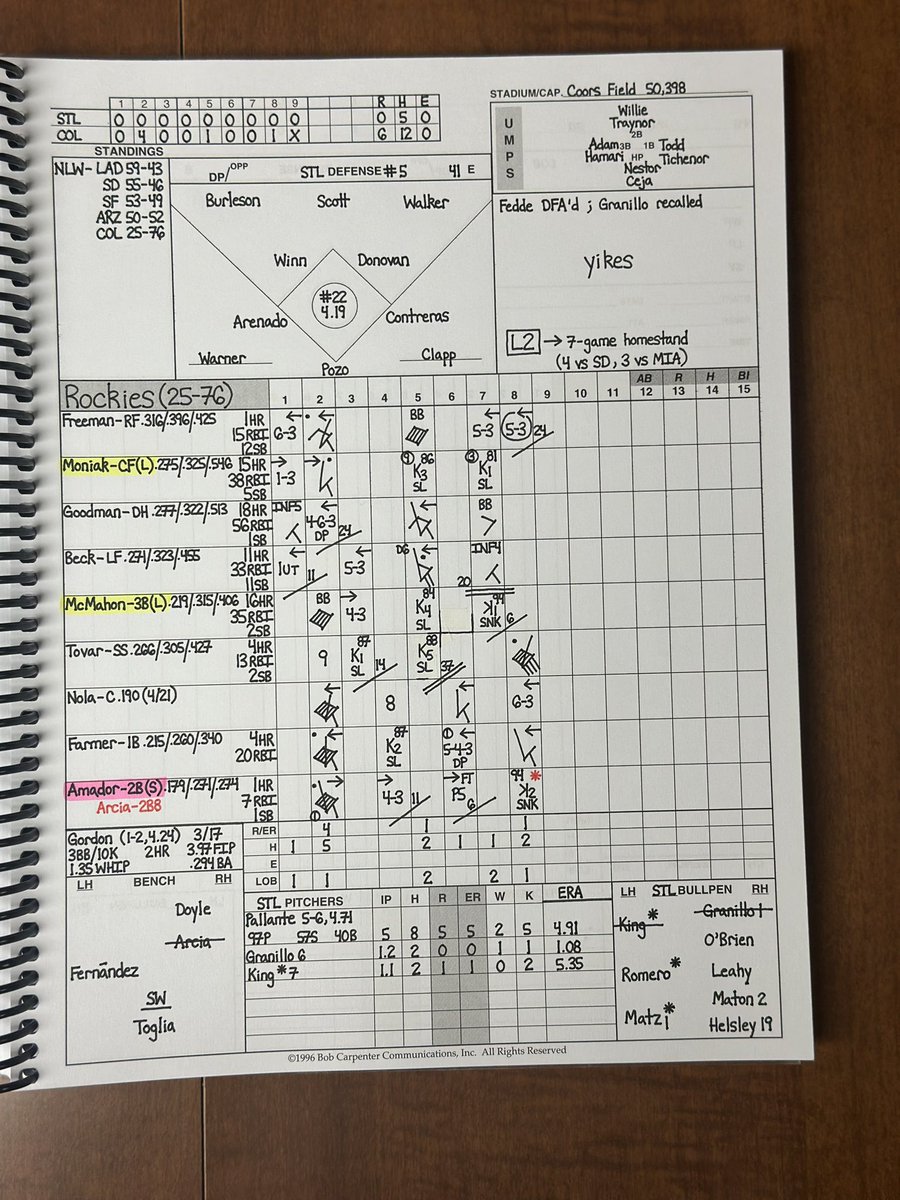 STADIUM/CAP. Coors Field 50,398
1 2 3 4 5 6 7 8 9 R H E
STL 0 0 0 0 0 0 0 0 0 0 5 0
COL 0 4 0 0 1 0 0 1 X 6 12 0
UMPS
Willie
Traynor
2B
Adam 3B 1B Todd
Hamari HP Tichenor
Nestor
Ceja
STANDINGS
NLW- LAD 59-43
SD 55-46
SF 53-49
ARZ 50-52
COL 25-76
DP/OPP STL DEFENSE #5 41 E
Burleson Scott Walker
Winn Donovan
#22
4.19
Arenado Contreras
Warner Clapp
Pozo
Fedde DFA'd ; Granillo recalled
yikes
L2 → 7-game homestand
(4 vs SD, 3 vs MIA)
AB R H BI
Rockies (25-76) 1 2 3 4 5 6 7 8 9 10 11 12 13 14 15
Freeman-RF .316/.396/.425 1HR BB
15RBI 6-3 5-3 5-3 24
12SB
Moniak-CF(L) .275/.325/.546 15HR 86 81
38RBI 1-3 K3 K1
5SB SL SL
Goodman-DH .277/.322/.513 18HR INF5 BB
56RBI 4-6-3
1SB DP 24
Beck-LF .271/.323/.455 11HR D6 INF4
33RBI 1UT 5-3
11SB 11 20
McMahon-3B(L) .219/.315/.406 16HR BB 84 94
35RBI 4-3 K4 K1
2SB SL SNK 6
Tovar-SS .266/.305/.427 4HR 87 88
13RBI 9 K1 K5
2SB SL 14 SL 37
Nola-C .190 (4/21) 8 6-3
Farmer-1B .215/.260/.340 4HR 87
20RBI K2 5-4-3
SL DP
Amador-2B(S) .179/.271/.274 1HR FT 94 *
Arcia-2B8 7RBI 4-3 11 F5 6 K2
1SB SNK
R/ER 4 1 1
H 1 5 2 1 1 2
E
LOB 1 1 2 2 1
Gordon (1-2, 4.24) 3/17
3BB/10K 2HR 3.97 FIP
1.35 WHIP .294 BA
LH BENCH RH
Doyle
Arcia
Fernández
SW
Toglia
STL PITCHERS IP H R ER W K ERA
Pallante 5-6, 4.71
97P 57S 40B 5 8 5 5 2 5 4.91
Granillo 6 1.2 2 0 0 1 1 1.08
King*7 1.1 2 1 1 0 2 5.35
LH STL BULLPEN RH
King* Granillo 1
O'Brien
Romero* Leahy
Matz 1* Maton 2
Helsley 19
©1996 Bob Carpenter Communications, Inc. All Rights Reserved